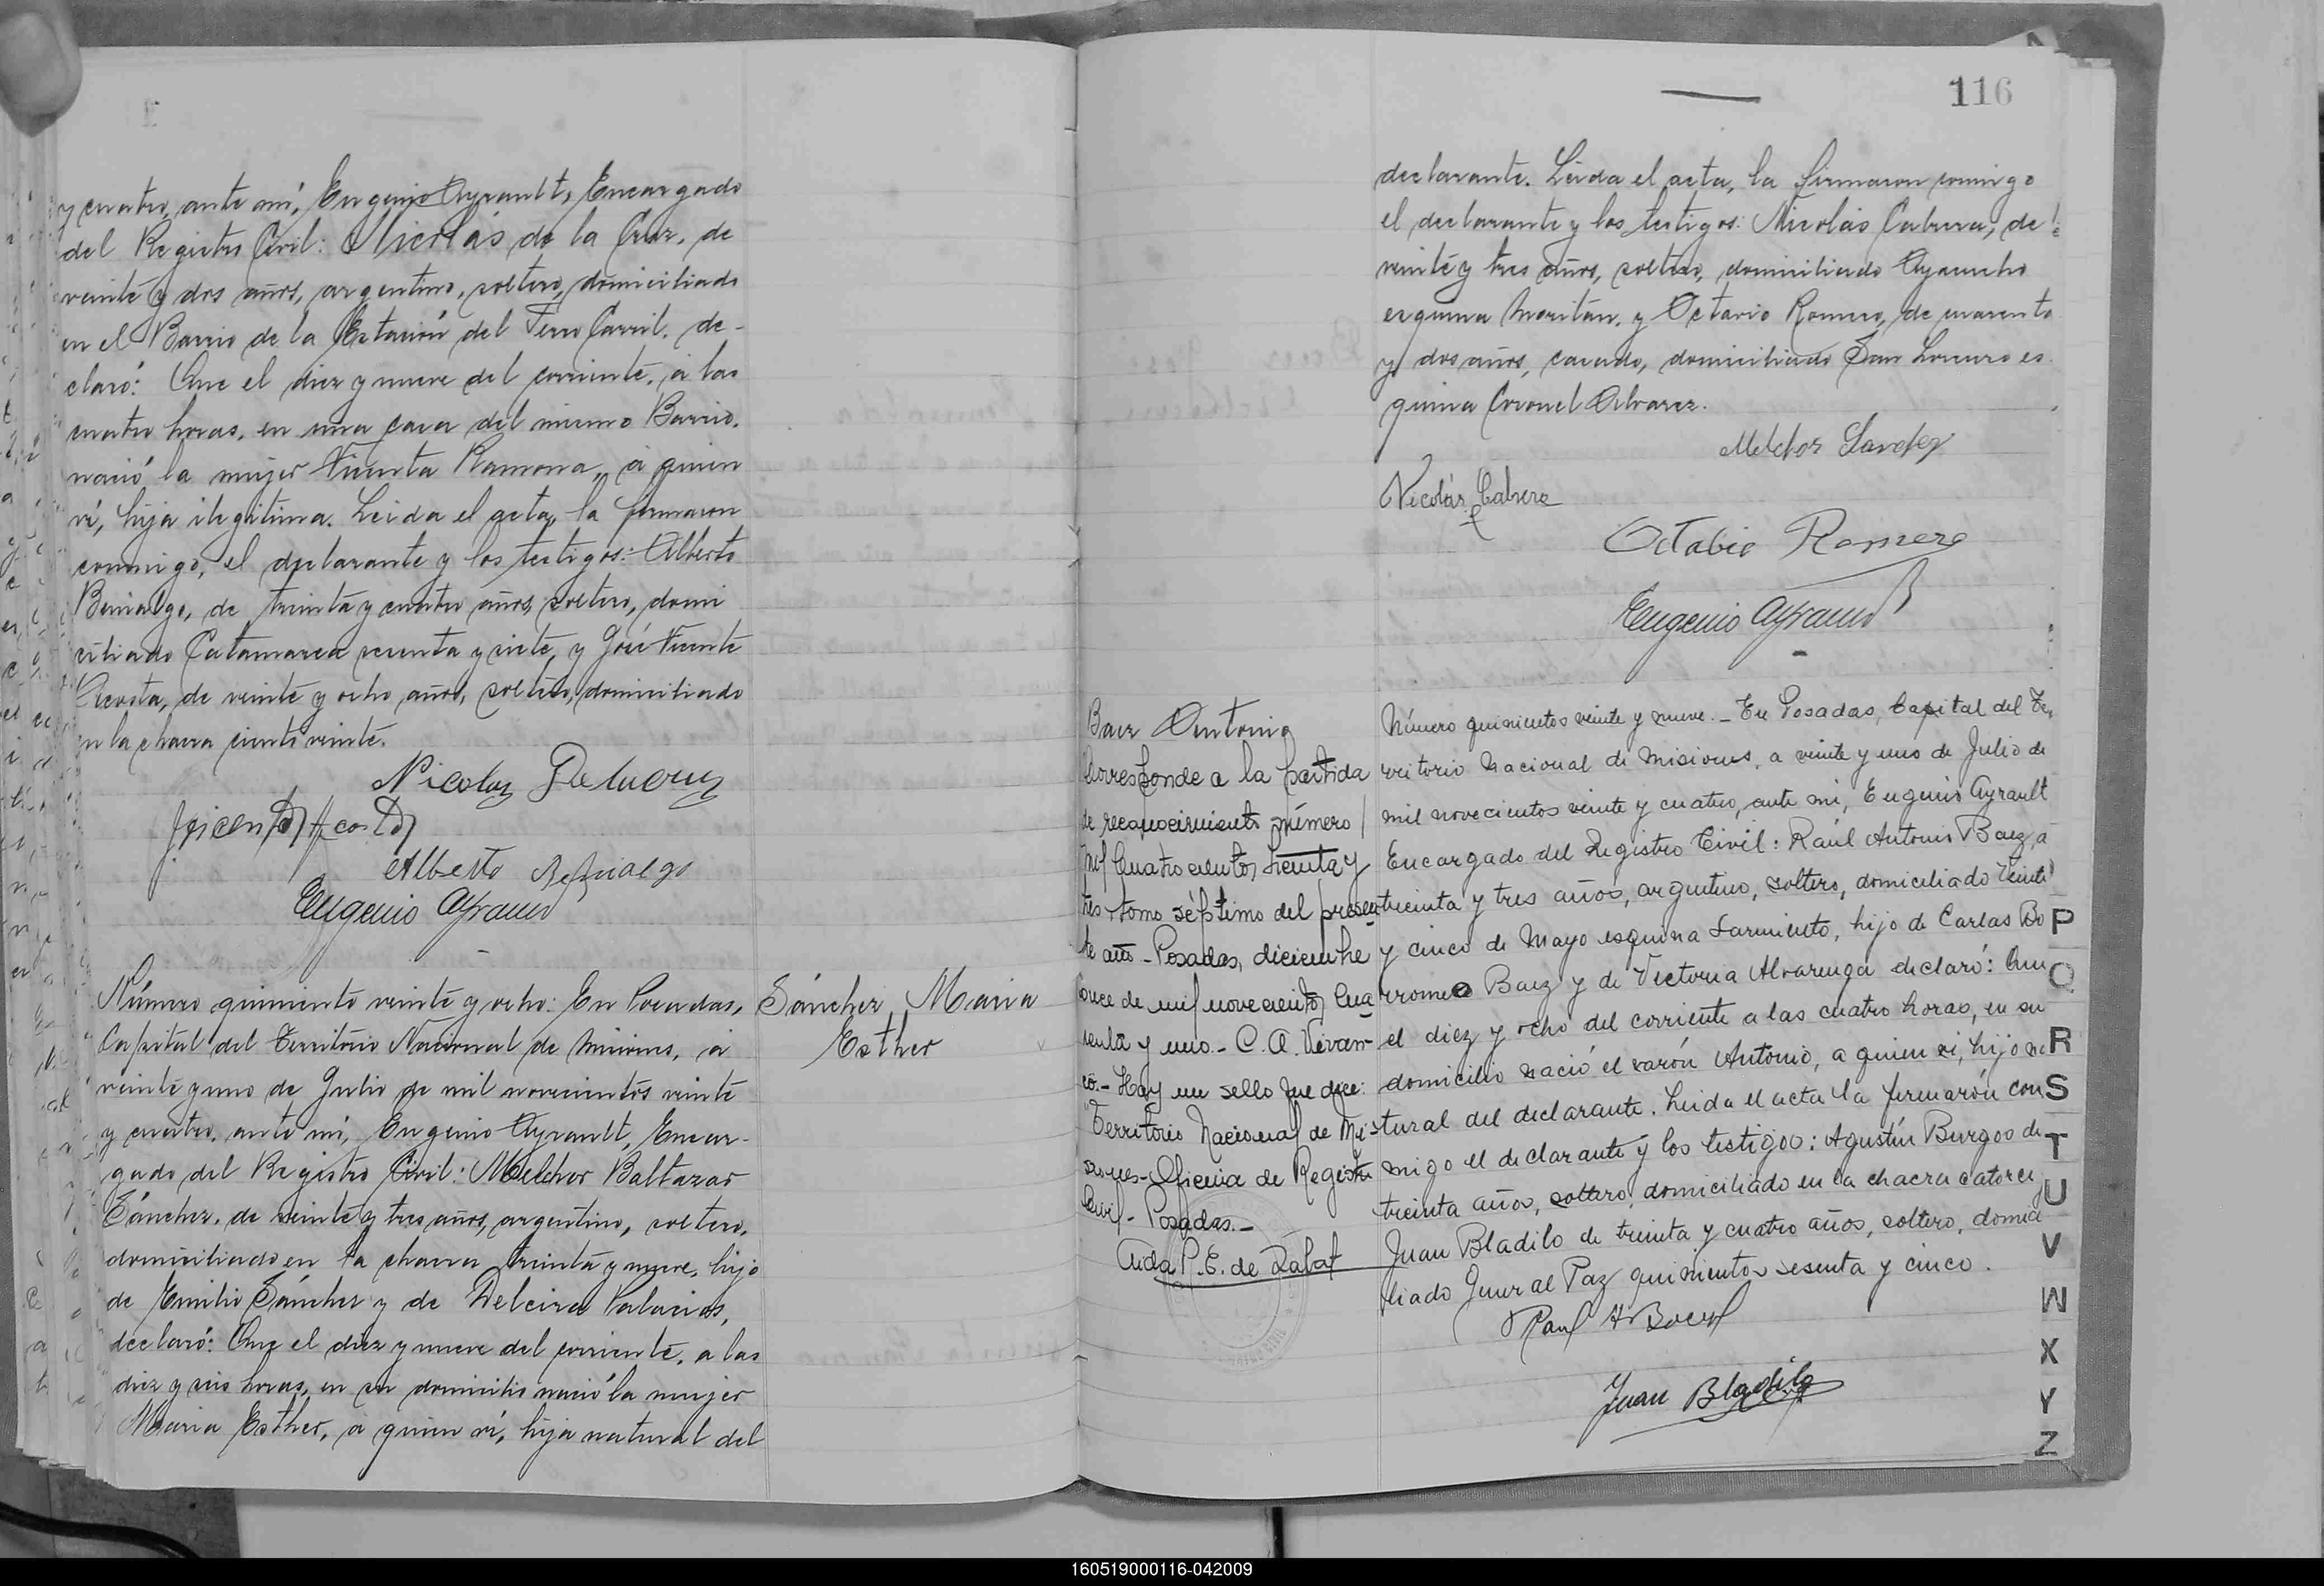 y cuatro, ante mí, Eugenio Ayrault, Encargado
del Registro Civil: Nicolás de la Cruz, de
veinte y dos años, argentino, soltero, domiciliado
en el Barrio de la Estación del Ferro Carril, de-
claró: Que el diez y nueve del corriente, a las
cuatro horas, en una casa del mismo Barrio,
nació la mujer Vicenta Ramona, a quien
ví, hija ilegítima. Leida el acta, la firmaron
conmigo, el declarante y los testigos: Alberto
de treinta y cuatro años, soltero, domi
ciliado Catamarca sesenta y siete, y José Vicente
Acosta, de veinte y ocho años, soltero, domiciliado
en la chacra ciento veinte.
Nicolas Delacruz
Jvicente Acosta
Alberto
Eugenio Ayrault
Número quiniento veinte y ocho: En Posadas,
Capital del Territorio Nacional de Misiones, a
veinte y uno de Julio de mil novecientos veinte
y cuatro, ante mí, Eugenio Ayrault, Encar-
gado del Registro Civil: Melchor Baltazar
Sánchez, de veinte y tres años, argentino, soltero,
domiciliado en la chacra treinta y nueve, hijo
de Emilio Sánchez y de Delcira Palacios,
declaró: Que el diez y nueve del corriente, a las
diez y seis horas, en su domicilio nació la mujer
Maria Esther, a quien ví, hija natural del
Sánchez, Maria
Esther
116
declarante. Leida el acta, la firmaron conmigo
el declarante y los testigos: Nicolás Cabrera, de
veinte y tres años, soltero, domiciliado Ayacucho
esquina Moritán, y Octavio Romero, de cuarenta
y dos años, casado, domiciliado San Lorenzo es
quina Coronel Alvarez.
Melchor Sanchez
Nicolás Cabrera
Octabio Romero
Eugenio Ayrault
Baez Antonio
Corresponde a la partida
de reconocimiento número
mil cuatrocientos treinta y
tres, tomo séptimo del presen
te año - Posadas, diciembre
once de mil novecientos cua
renta y uno. - C. A. Vivan-
co. - Hay un sello que dice:
"Territorio Nacional de Mi-
siones - Oficina de Registro
Civil - Posadas. -
Aida P. E. de Zabat
Número quinientos veinte y nueve. - En Posadas, Capital del Te,
rritorio Nacional de Misiones, a veinte y uno de Julio de
mil novecientos veinte y cuatro, ante mí, Eugenio Ayrault
Encargado del Registro Civil: Raúl Antonio Baez, de
treinta y tres años, argentino, soltero, domiciliado Veinte
y cinco de Mayo esquina Sarmiento, hijo de Carlos Bo
rromeo Baez y de Victoria Alvarenga declaró: Que
el diez y ocho del corriente a las cuatro horas, en su
domicilio nació el varón Antonio, a quien ví, hijo na
tural del declarante. Leida el acta la firmarón con
migo el declarante y los testigos: Agustín Burgos de
treinta años, soltero, domiciliado en la chacra catorce y
Juan Bladilo de treinta y cuatro años, soltero, domici
liado General Paz quinientos sesenta y cinco.
Raul A Baez
Juan Bladilo
P
Q
R
S
T
U
V
W
X
Y
Z
160519000116-042009